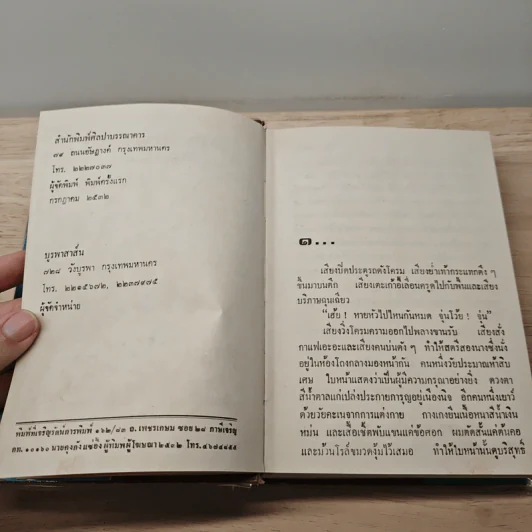 สำนักพิมพ์ศิลปาบรรณาคาร
๗๙ ถนนอัษฎางค์ กรุงเทพมหานคร
โทร. ๒๒๒๗๐๓๗
ผู้จัดพิมพ์ พิมพ์ครั้งแรก
กรกฎาคม ๒๕๓๒
บูรพาสาส์น
๗๒๘ วังบูรพา กรุงเทพมหานคร
โทร. ๒๒๑๕๖๗๒, ๒๒๓๗๙๗๕
ผู้จัดจำหน่าย
๑๖๒/๔๓ ถ. เพชรเกษม ซอย ๒๘ ภาษีเจริญ
กท. ๑๐๑๖๐ ผู้พิมพ์ผู้โฆษณา ๒๕๓๒ โทร.
๑...
เสียงปิดประตูรถดังโครม เสียงย่ำเท้ากระแทกดัง ๆ
ขึ้นมาบนตึก เสียงเตะเก้าอี้เลื่อนครูดไปกับพื้นและเสียง
บริภาษฉุนเฉียว
"เฮ้ย ! หายหัวไปไหนกันหมด จุ่นโว้ย ! จุ่น"
เสียงวิ่งโครมครามออกไปพลางขานรับ เสียงสั่ง
กาแฟเอะอะและเสียงคนบ่นดัง ๆ ทำให้สตรีสองนางซึ่งนั่ง
อยู่ในห้องโถงกลางมองหน้ากัน คนหนึ่งวัยประมาณห้าสิบ
เศษ ใบหน้าแสดงว่าเป็นผู้มีความกรุณาอย่างยิ่ง ดวงตา
สีน้ำตาลแก่เปล่งประกายการุญอยู่เนืองนิจ อีกคนหนึ่งเยาว์
ด้วยวัยคะเนจากการแต่งกาย กางเกงยีนเนื้อหนาสีน้ำเงิน
หม่น และเสื้อเชิ้ตพับแขนแค่ข้อศอก ผมตัดสั้นแค่ต้นคอ
และม้วนโรลไว้เสมอ ทำให้ใบหน้านั้นดูบริสุทธิ์